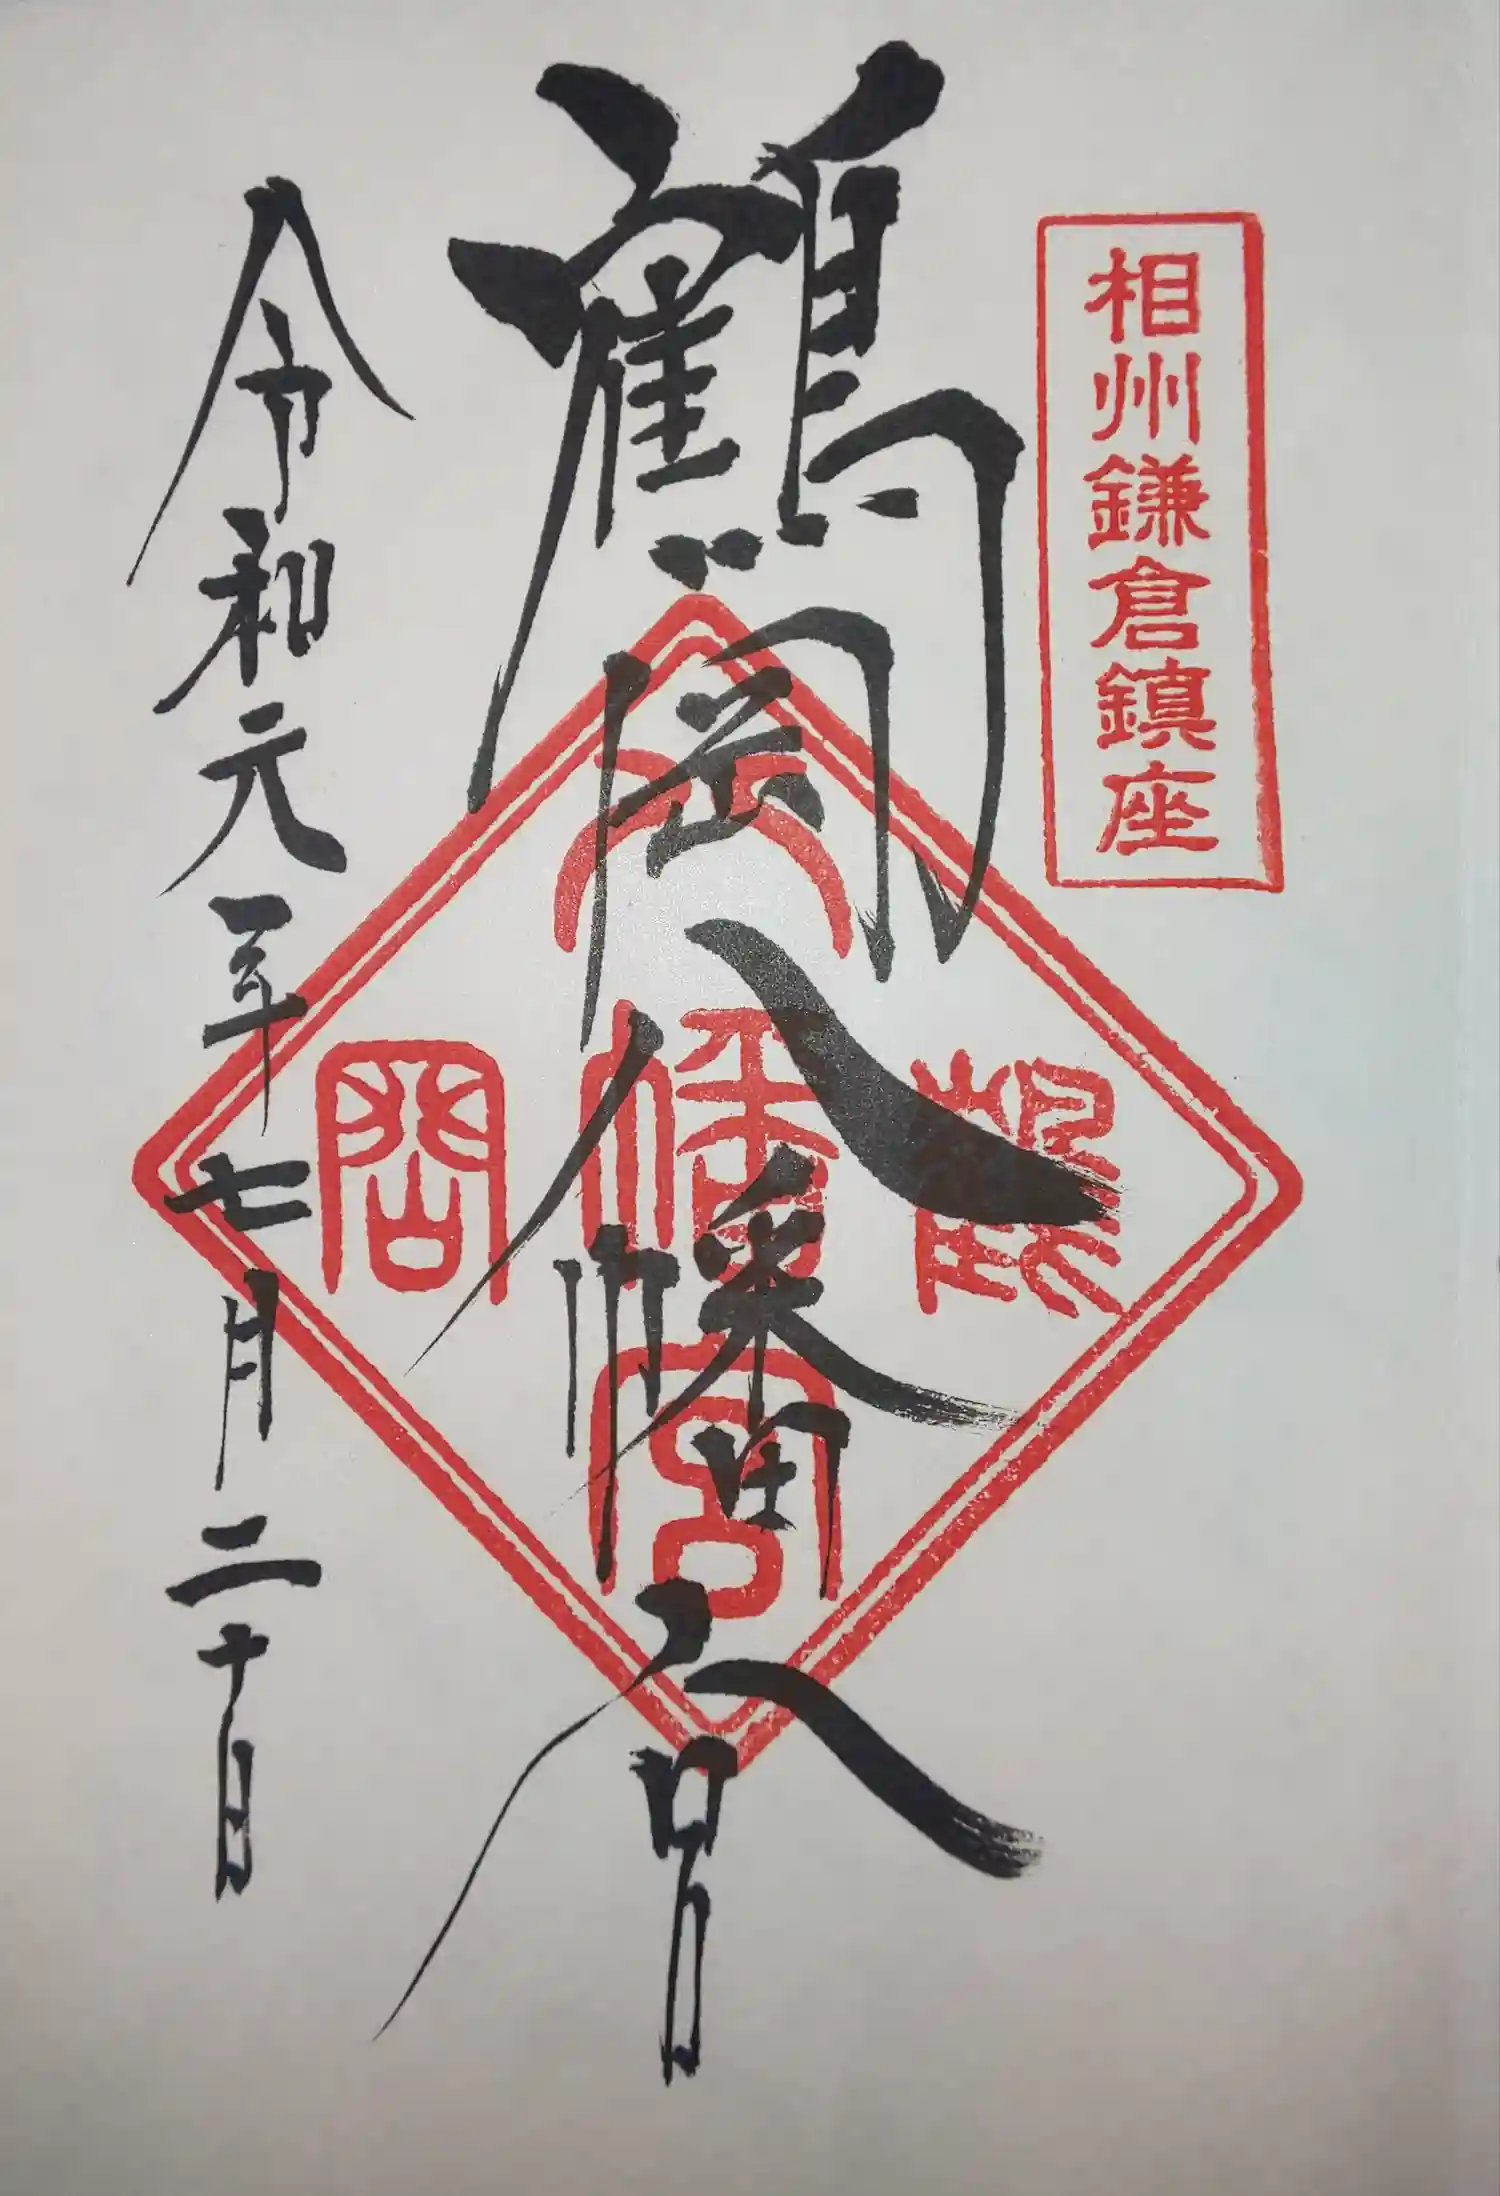 相州鎌倉鎮座
鶴岡八幡宮
鶴
岡
八
幡
宮
令和元年七月二十日